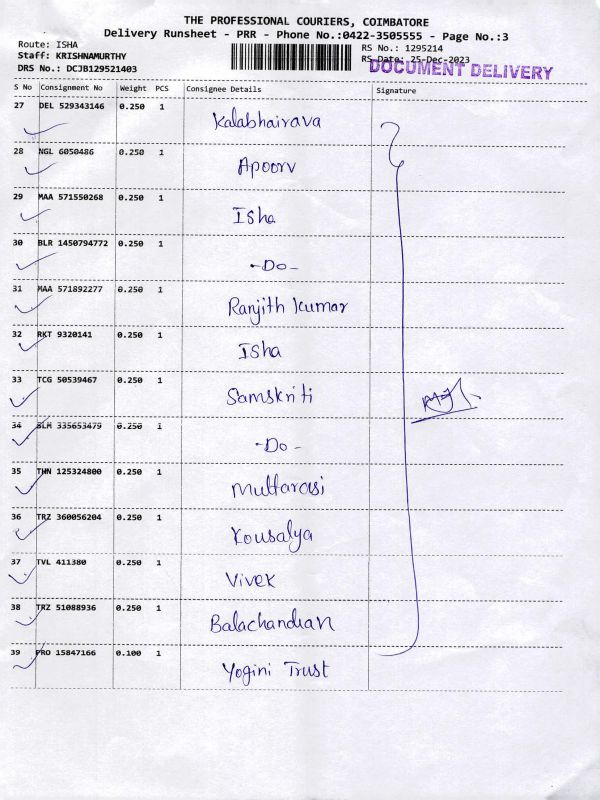 THE PROFESSIONAL COURIERS, COIMBATORE
Delivery Runsheet - PRR - Phone No.:0422-3505555 - Page No.:3
Route: ISHA RS No.: 1295214
Staff: KRISHNAMURTHY RS Date: 25-Dec-2023
DRS No.: DCJB129521403 DOCUMENT DELIVERY
S No Consignment No Weight PCS Consignee Details Signature
27 DEL 529343146 0.250 1 Kalabhairava
28 NGL 6050486 0.250 1 Apoorv
29 MAA 571550268 0.250 1 Isha
30 BLR 1450794772 0.250 1 -Do-
31 MAA 571892277 0.250 1 Ranjith Kumar
32 RKT 9320141 0.250 1 Isha
33 TCG 50539467 0.250 1 Samskriti
34 BLM 335653479 0.250 1 -Do-
35 THN 125324800 0.250 1 Muttarasi
36 TRZ 360056204 0.250 1 Kousalya
37 TVL 411380 0.250 1 Vivek
38 TRZ 51088936 0.250 1 Balachandran
39 PRO 15847166 0.100 1 Yogini Trust